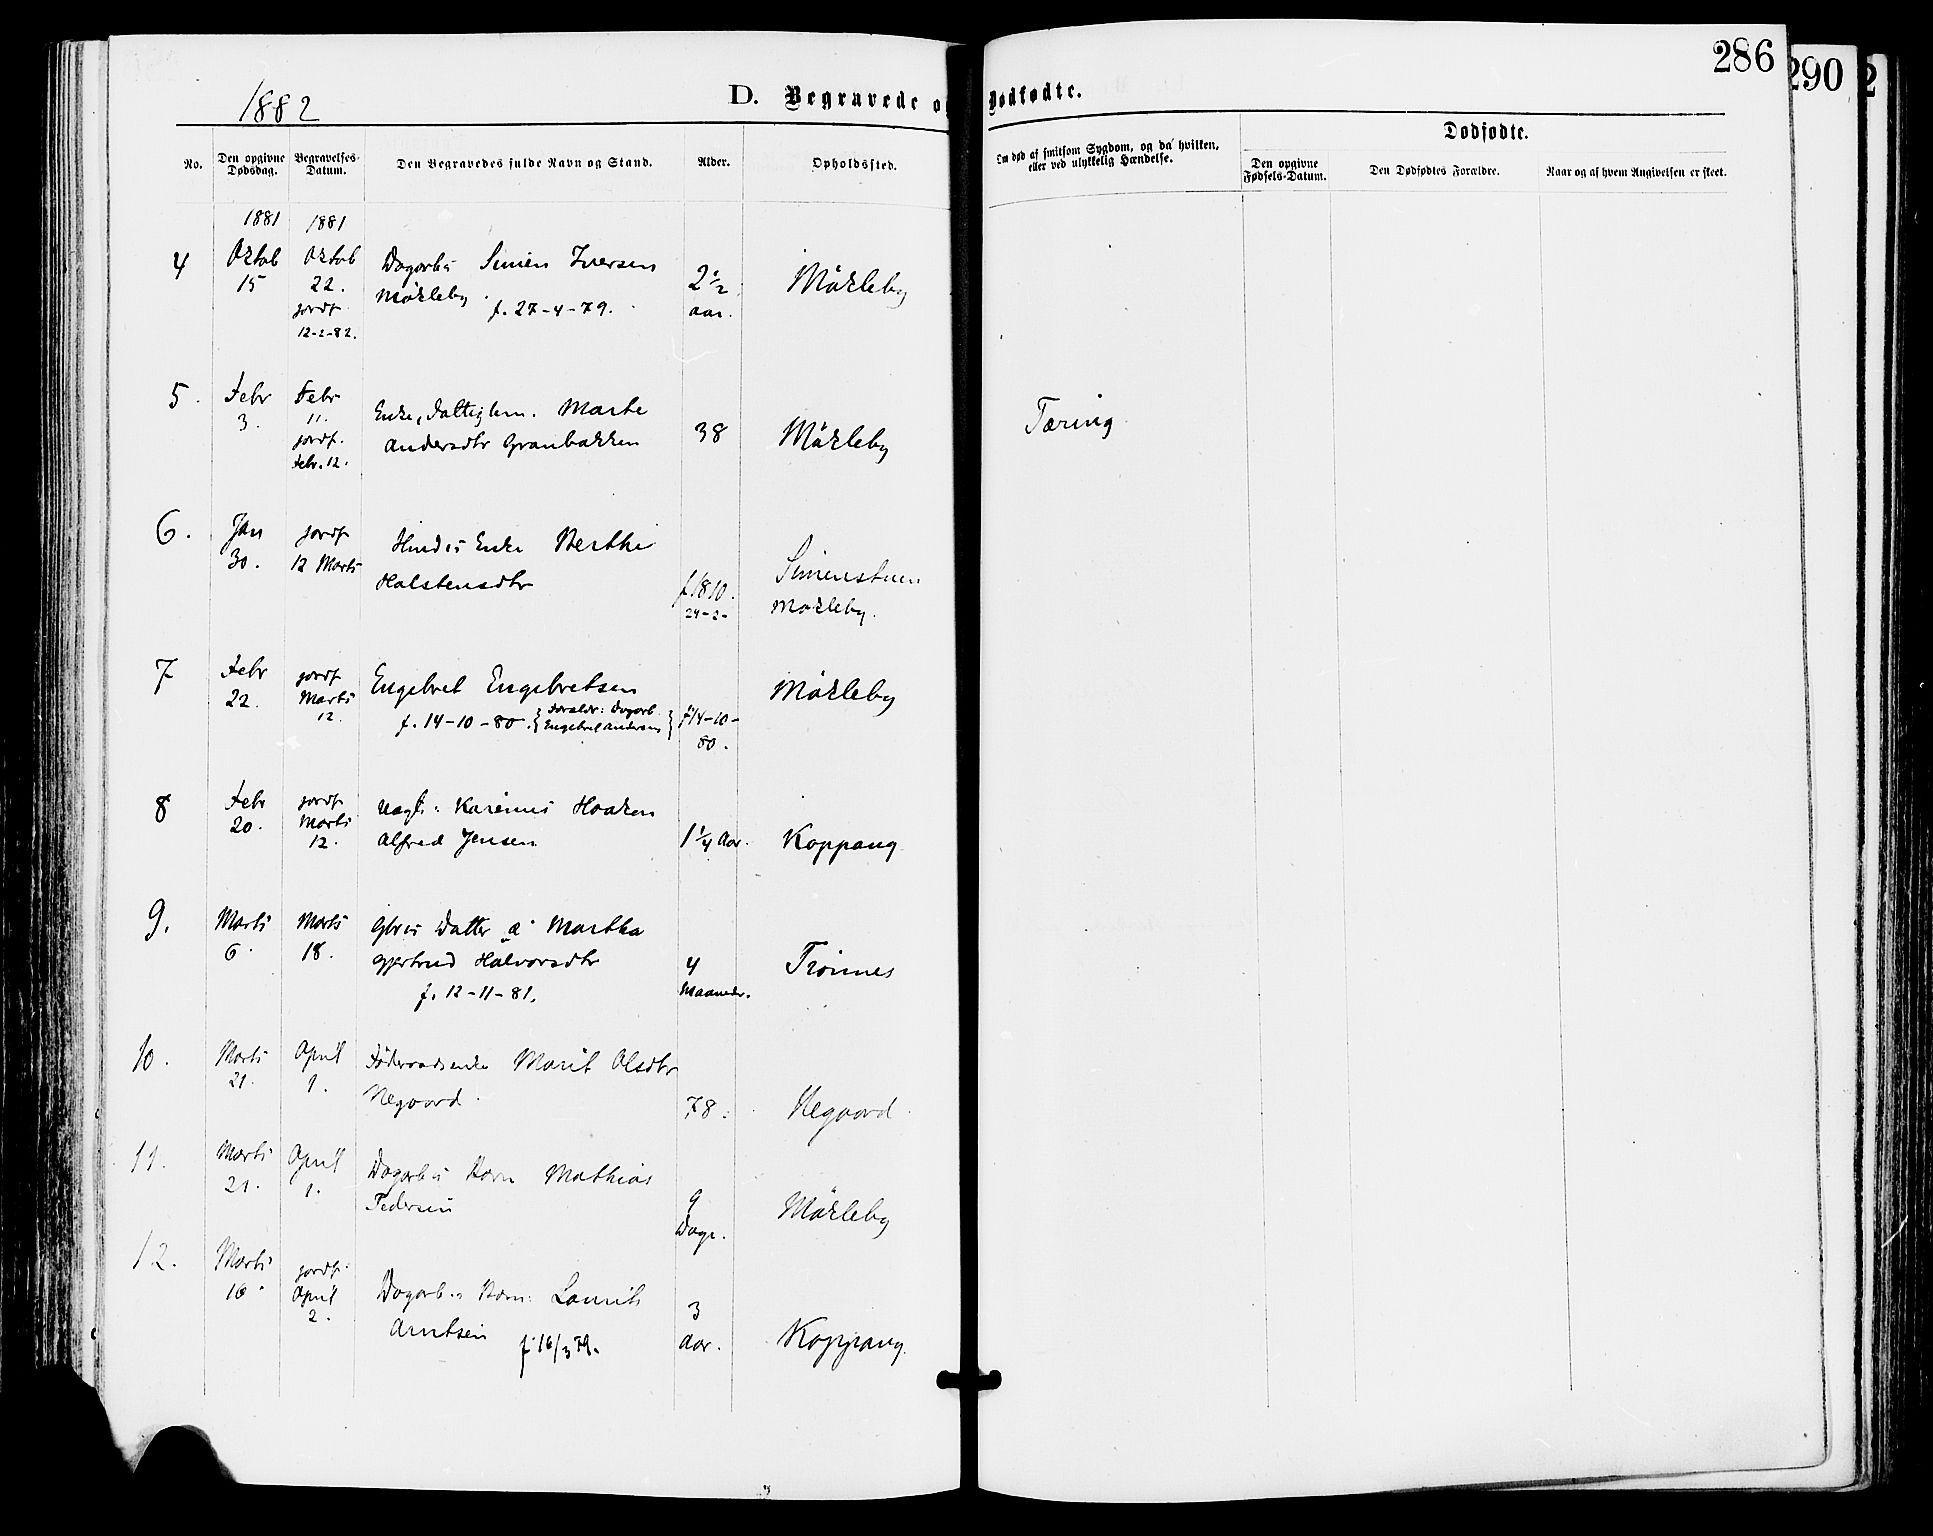 286
290
2
1882
D. Begravede og Dødfødte.
No.
Den opgivne Dødsdag.
Begravelses-Datum.
Den Begravedes fulde Navn og Stand.
Alder.
Opholdssted.
Om død af smitsom Sygdom, og da hvilken,
eller ved ulykkelig Hændelse.
Dødfødte.
Den opgivne Fødsels-Datum.
Den Dødfødtes Forældre.
Naar og af hvem Angivelsen er skeet.
1881 1881
4 Oktob Oktob Dagarbs Simen Iversen 2½ Mökleby
15 22. Mökleby f. 27-4-79. aar.
jordf. 12-2-82.
5. Febr Febr Enke, Fattiglem. Marte 38 Mökleby Tæring
3. 11. Andersdtr Granbakken
jordf. Febr. 12.
6. Jan jordf Enke Berthe Simenstuen
30. 12 Marts Halstensdtr f 1810. Mökleby.
24-2-
7 Febr jordf Engebret Engebretsen Mökleby
22. Marts f. 14-10-80. {Foraldr: Dagarb. f 14-10-
12. Engebret Andersen} 80.
8 Febr jordf Karinus Haaken
20. Marts Alfred Jensen 1¼ Aar. Koppang
12.
9. Marts Marts Gbrs Datter Martha
6. 18. Gjertrud Halvorsdtr 4 Trønnes
f. 12-11-81. Maaneder.
10. Marts April Føderaadsenke Marit Olsdtr
21. 1. Negaard. 78. Negaard
11. Marts April Dagarbs Barn Mathias
21. 1. Pedersen 9 Dage. Mökleby
12. Marts jordf. Dagarb.s Barn: Laurits 3
16. April Arntsen Aar. Koppang.
2. f 16/3 79.